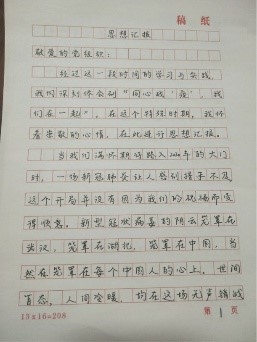 稿 纸
思想汇报
敬爱的党组织：
经过这一段时间的学习与实践，
我们深刻体会到“同心战‘疫’，我
们在一起”，在这个特殊时期，我怀
着崇敬的心情，在此进行思想汇报。
当我们满怀期待踏入2020年的大门
时，一场新冠肺炎让人感到措手不及
这个开局并没有因为我们的祝福而变
得惊喜。新型冠状病毒的阴云笼罩在
武汉，笼罩在湖北，笼罩在中国，当
然在笼罩在每个中国人的心上。世间
百态。人间冷暖，均在这场无声硝战
13×16=208
第1页